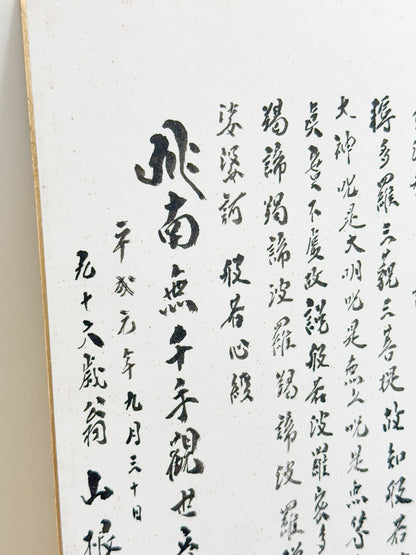 耨多羅三藐三菩提故知般若
大神呪是大明呪是無上呪是無等
眞實不虚故説般若波羅蜜多
羯諦羯諦波羅羯諦波羅僧
娑婆訶 般若心経
南無千手觀世音
平成元年九月三十日
九十六歳翁 山